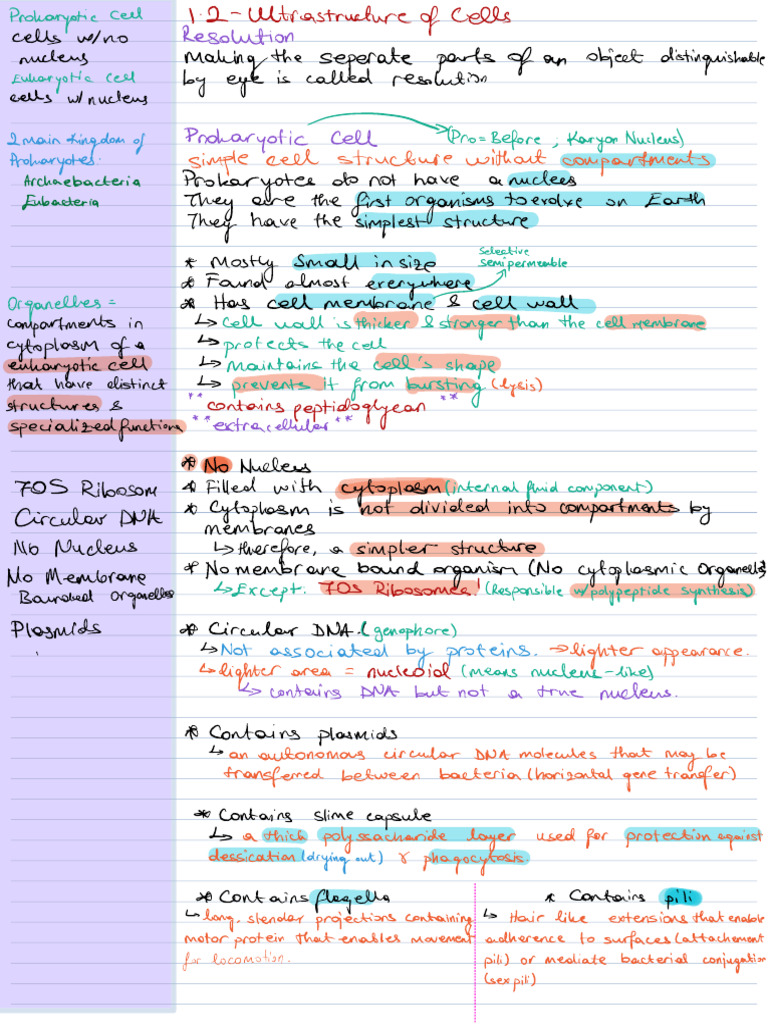 Prokaryotic Cell
cells w/no
nucleus
Eukaryotic Cell
cells w/nucleus
2 main kingdom of
Prokaryotes.
Archaebacteria
Eubacteria
Organelles =
compartments in
cytoplasm of a
eukaryotic cell
that have distinct
structures &
specialized functions
70S Ribosom
Circular DNA
No Nucleus
No Membrane
Bounded Organelles
Plasmids
1.2 - Ultrastructure of Cells
Resolution
Making the seperate parts of an object distinguishable
by eye is called resolution
Prokaryotic Cell (Pro = Before ; Karyon Nucleus)
simple cell structure without compartments
Prokaryotes do not have a nuclees
They are the first organisms to evolve on Earth
They have the simplest structure
* Mostly Small in size
Selective
semi permeable
* Found almost everywhere
* Has cell membrane & cell wall
↳ Cell wall is thicker & stronger than the cell membrane
↳ protects the cell
↳ maintains the cell's shape
↳ prevents it from bursting (lysis)
** contains peptidoglycan **
** extracellular **
* No Nucleus
* Filled with cytoplasm (internal fluid component)
* Cytoplasm is not divided into compartments by
membranes
↳ therefore, a simpler structure
* No membrane bound organism (No cytoplasmic Organells)
↳ Except: 70S Ribosomes! (Responsible w/polypeptide synthesis)
* Circular DNA (genophore)
↳ Not associated by proteins. → lighter appearance.
↳ lighter area = nucleoid (means nucleus-like)
↳ contains DNA but not a true nucleus.
* Contains plasmids
↳ an autonomous circular DNA molecules that may be
transferred between bacteria (horizontal gene transfer)
* Contains slime capsule
↳ a thick polyssacharide layer used for protection against
dessication (drying out) & phagocytosis.
* Contains flagella
↳ long, slendar projections containing
motor protein that enables movement
for locomotion.
* Contains pili
↳ Hair like extensions that enable
adherence to surfaces (attachement
pili) or mediate bacterial conjugation
(sex pili)